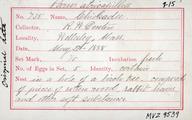 Parus atricapillus
9-15
No. 735. Chickadee
Collector, R. H. Denton
Locality, Wellesley, Mass.
Date, May 20th 1888
Set Mark, 75 Incubation fresh
No. of Eggs in Set, 5 Identity, certain
Nest in a hole of a birch tree, composed
of pieces of cotton wood, rabbit hairs
and other soft substance.
Original data
MVZ 9539